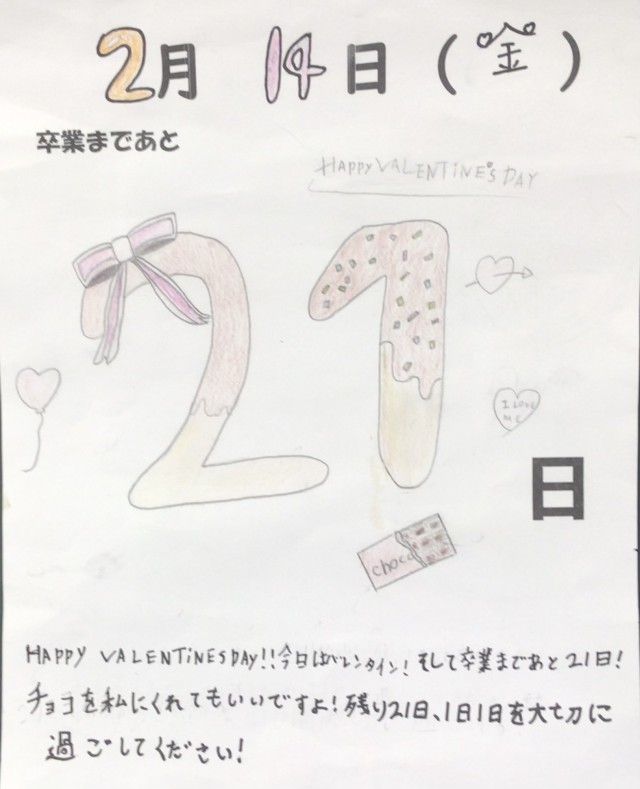 2月 14日（金）
卒業まであと
HAPPY VALENTiNE'S DAY
21
I LOVE
ME
日
choco
HAPPY VALENTiNESDAY!!今日はバレンタイン！そして卒業まであと21日！
チョコを私にくれてもいいですよ！残り21日、1日1日を大切に
過ごしてください！